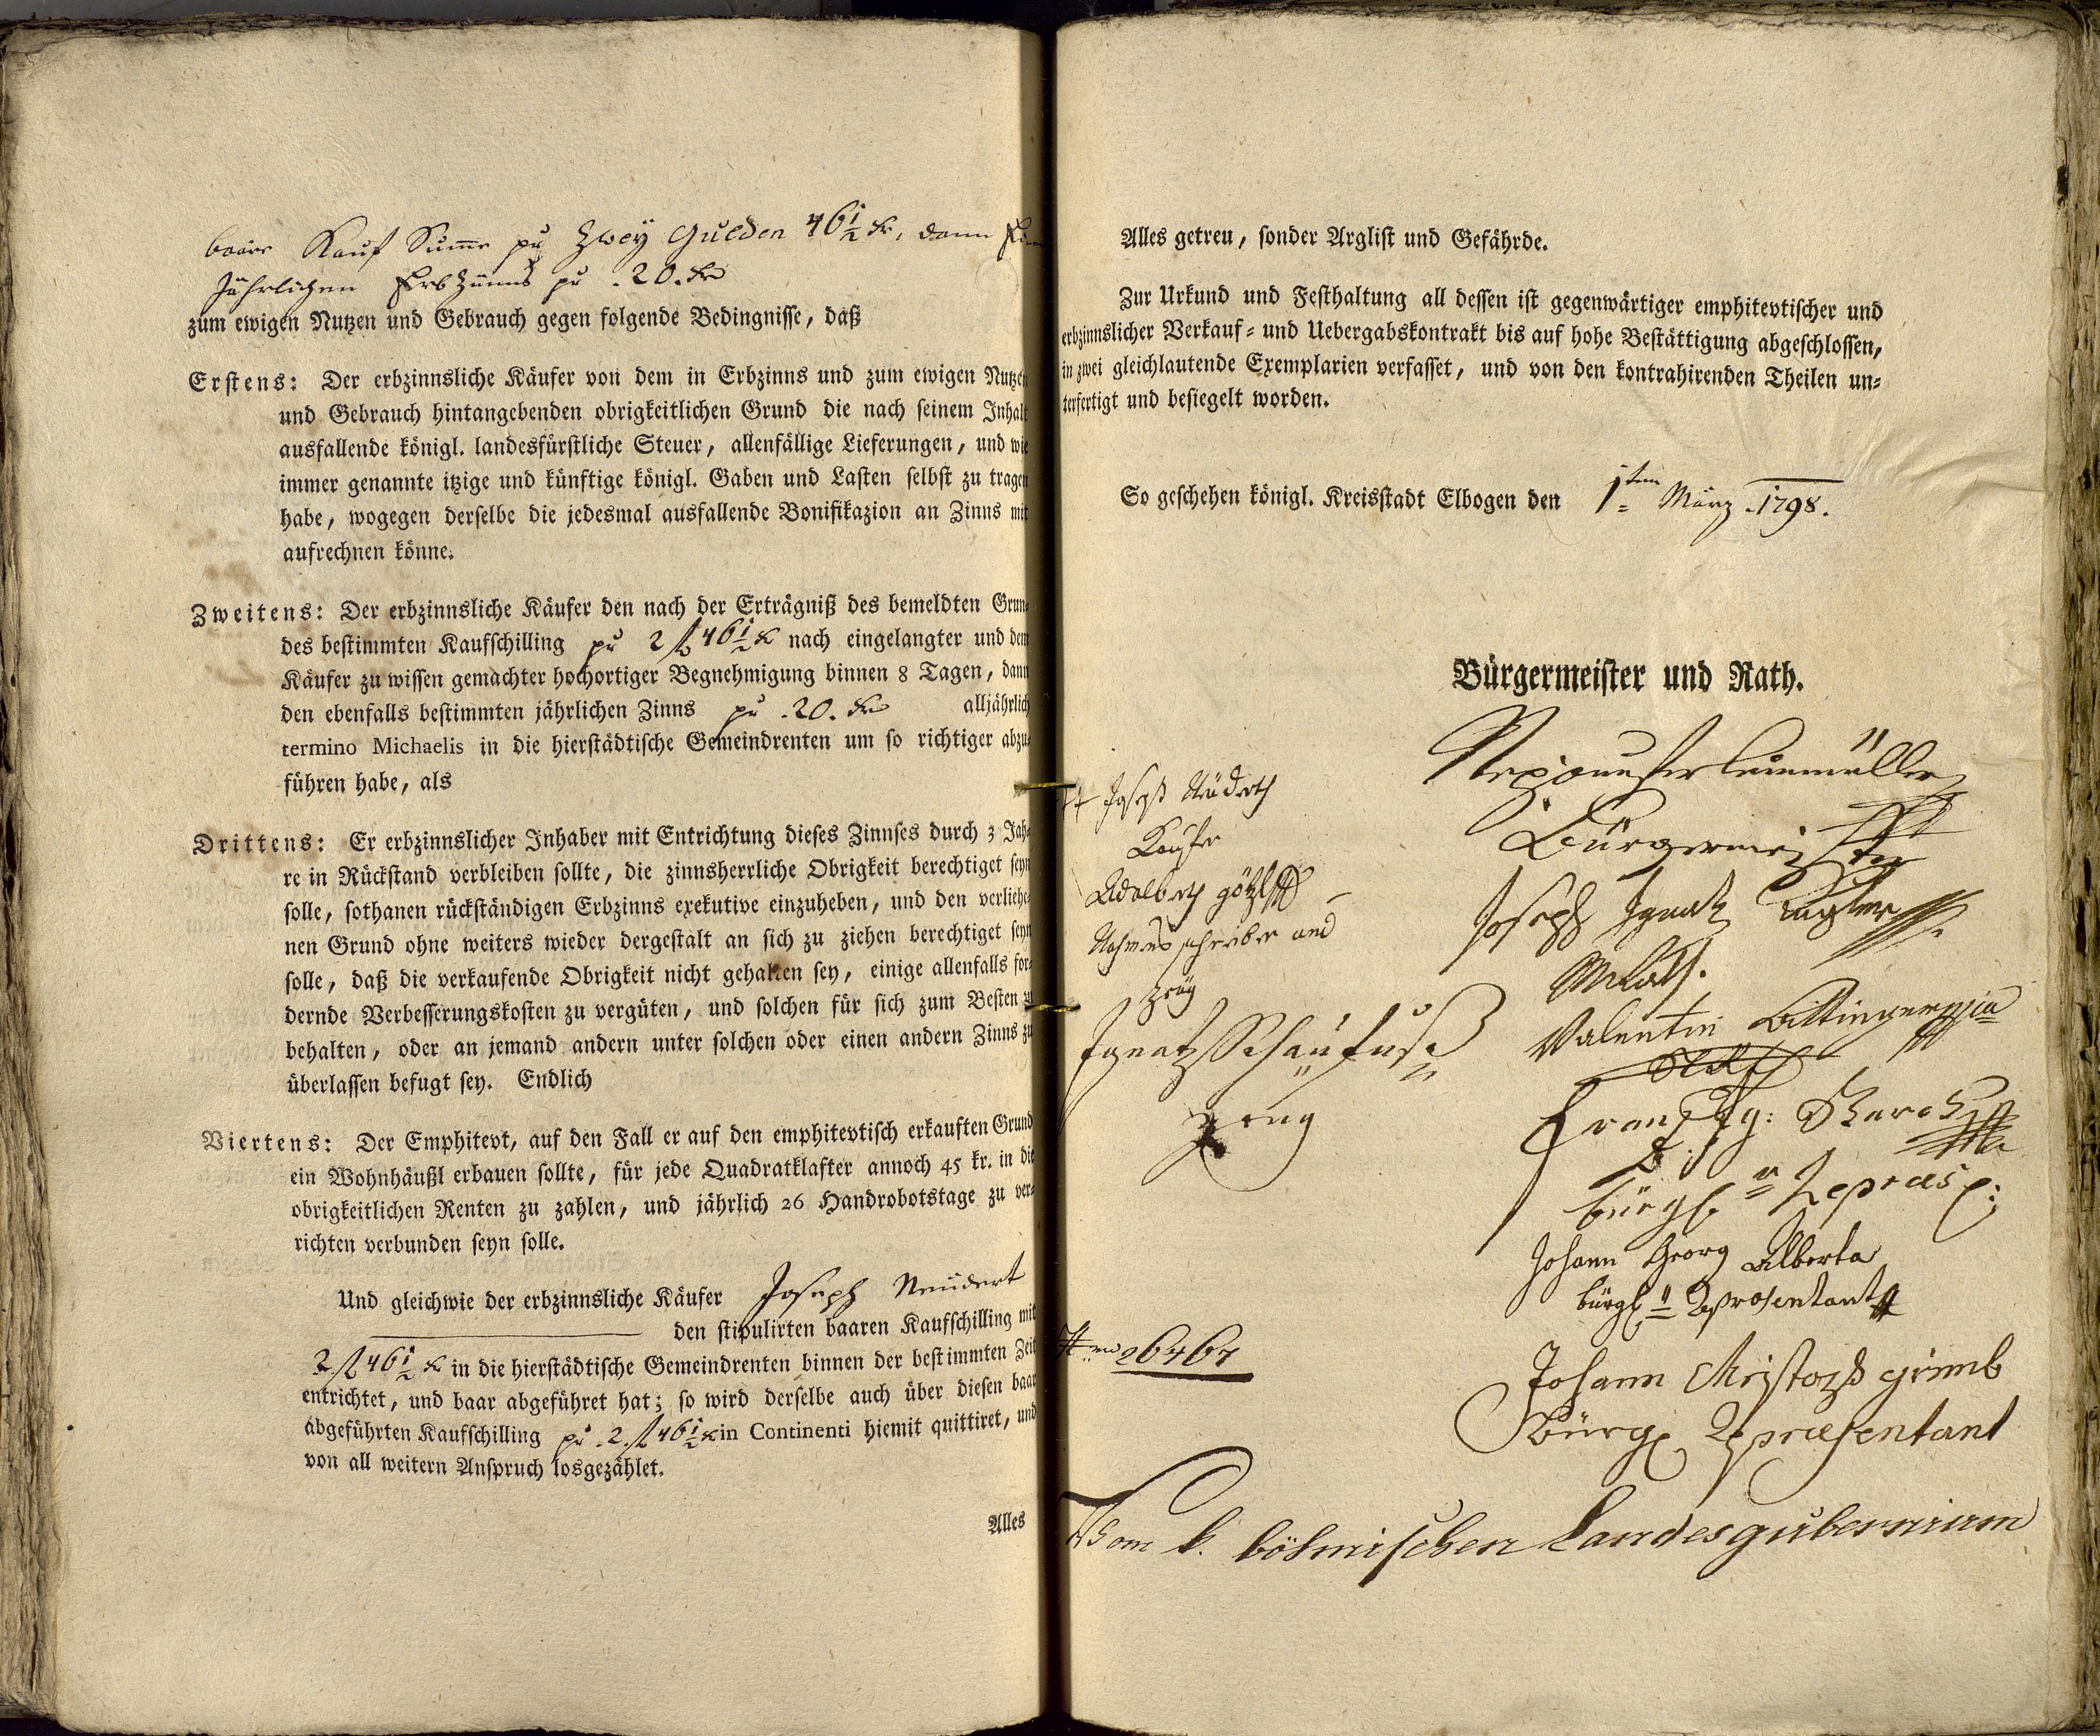 baare Kauf Summe pr Zwey Gulden 46 1/2 kr, dann
Jährlichen Erbzinns pr .20. kr
zum ewigen Nutzen und Gebrauch gegen folgende Bedingnisse, daß
Erstens: Der erbzinnsliche Käufer von dem in Erbzinns und zum ewigen Nutzen
und Gebrauch hintangebenden obrigkeitlichen Grund die nach seinem Inhalt
ausfallende königl. landesfürstliche Steuer, allenfällige Lieferungen, und wie
immer genannte itzige und künftige königl. Gaben und Lasten selbst zu tragen
habe, wogegen derselbe die jedesmal ausfallende Bonifikazion an Zinns mit
aufrechnen könne.
Zweitens: Der erbzinnsliche Käufer den nach der Erträgniß des bemeldten Grun-
des bestimmten Kaufschilling pr 2 fl 46 1/2 kr nach eingelangter und dem
Käufer zu wissen gemachter hochortiger Begnehmigung binnen 8 Tagen, dann
den ebenfalls bestimmten jährlichen Zinns pr .20. kr alljährlich
termino Michaelis in die hierstädtische Gemeindrenten um so richtiger abzu-
führen habe, als
Drittens: Er erbzinnslicher Inhaber mit Entrichtung dieses Zinnses durch 3 Jah-
re in Rückstand verbleiben sollte, die zinnsherrliche Obrigkeit berechtiget seyn
solle, sothanen rückständigen Erbzinns exekutive einzuheben, und den verliehe-
nen Grund ohne weiters wieder dergestalt an sich zu ziehen berechtiget seyn
solle, daß die verkaufende Obrigkeit nicht gehalten sey, einige allenfalls for-
dernde Verbesserungskosten zu vergüten, und solchen für sich zum Besten zu
behalten, oder an jemand andern unter solchen oder einen andern Zinns zu
überlassen befugt sey. Endlich
Viertens: Der Emphitevt, auf den Fall er auf den emphitevtisch erkauften Grund
ein Wohnhäußl erbauen sollte, für jede Quadratklafter annoch 45 kr. in die
obrigkeitlichen Renten zu zahlen, und jährlich 26 Handrobotstage zu ver-
richten verbunden seyn solle.
Und gleichwie der erbzinnsliche Käufer Joseph Neudert
den stipulirten baaren Kaufschilling mit
2 fl 46 1/2 kr in die hierstädtische Gemeindrenten binnen der bestimmten Zeit
entrichtet, und baar abgeführet hat; so wird derselbe auch über diesen baar
abgeführten Kaufschilling pr .2. fl 46 1/2 kr in Continenti hiemit quittiret, und
von all weitern Anspruch losgezählet.
Alles
Alles getreu, sonder Arglist und Gefährde.
Zur Urkund und Festhaltung all dessen ist gegenwärtiger emphitevtischer und
erbzinnslicher Verkauf- und Uebergabskontrakt bis auf hohe Bestättigung abgeschlossen,
in zwei gleichlautende Exemplarien verfasset, und von den kontrahirenden Theilen un-
terfertigt und besiegelt worden.
So geschehen königl. Kreisstadt Elbogen den 1ten März .1798.
Bürgermeister und Rath.
Bürgermeister
Joseph Ignatz
Valentin
bürgl.
Johann Georg Alberta
bürgl. Reprosentant
Johann Christoph
Bürgl. Repræsentant
Joseph
Käufer
Adalbert götzl
Nahmens schreiber und
Zeüg
Ignatz Schaufuß
Zeug
26464
Vom k. böhmischen Landesgubernium